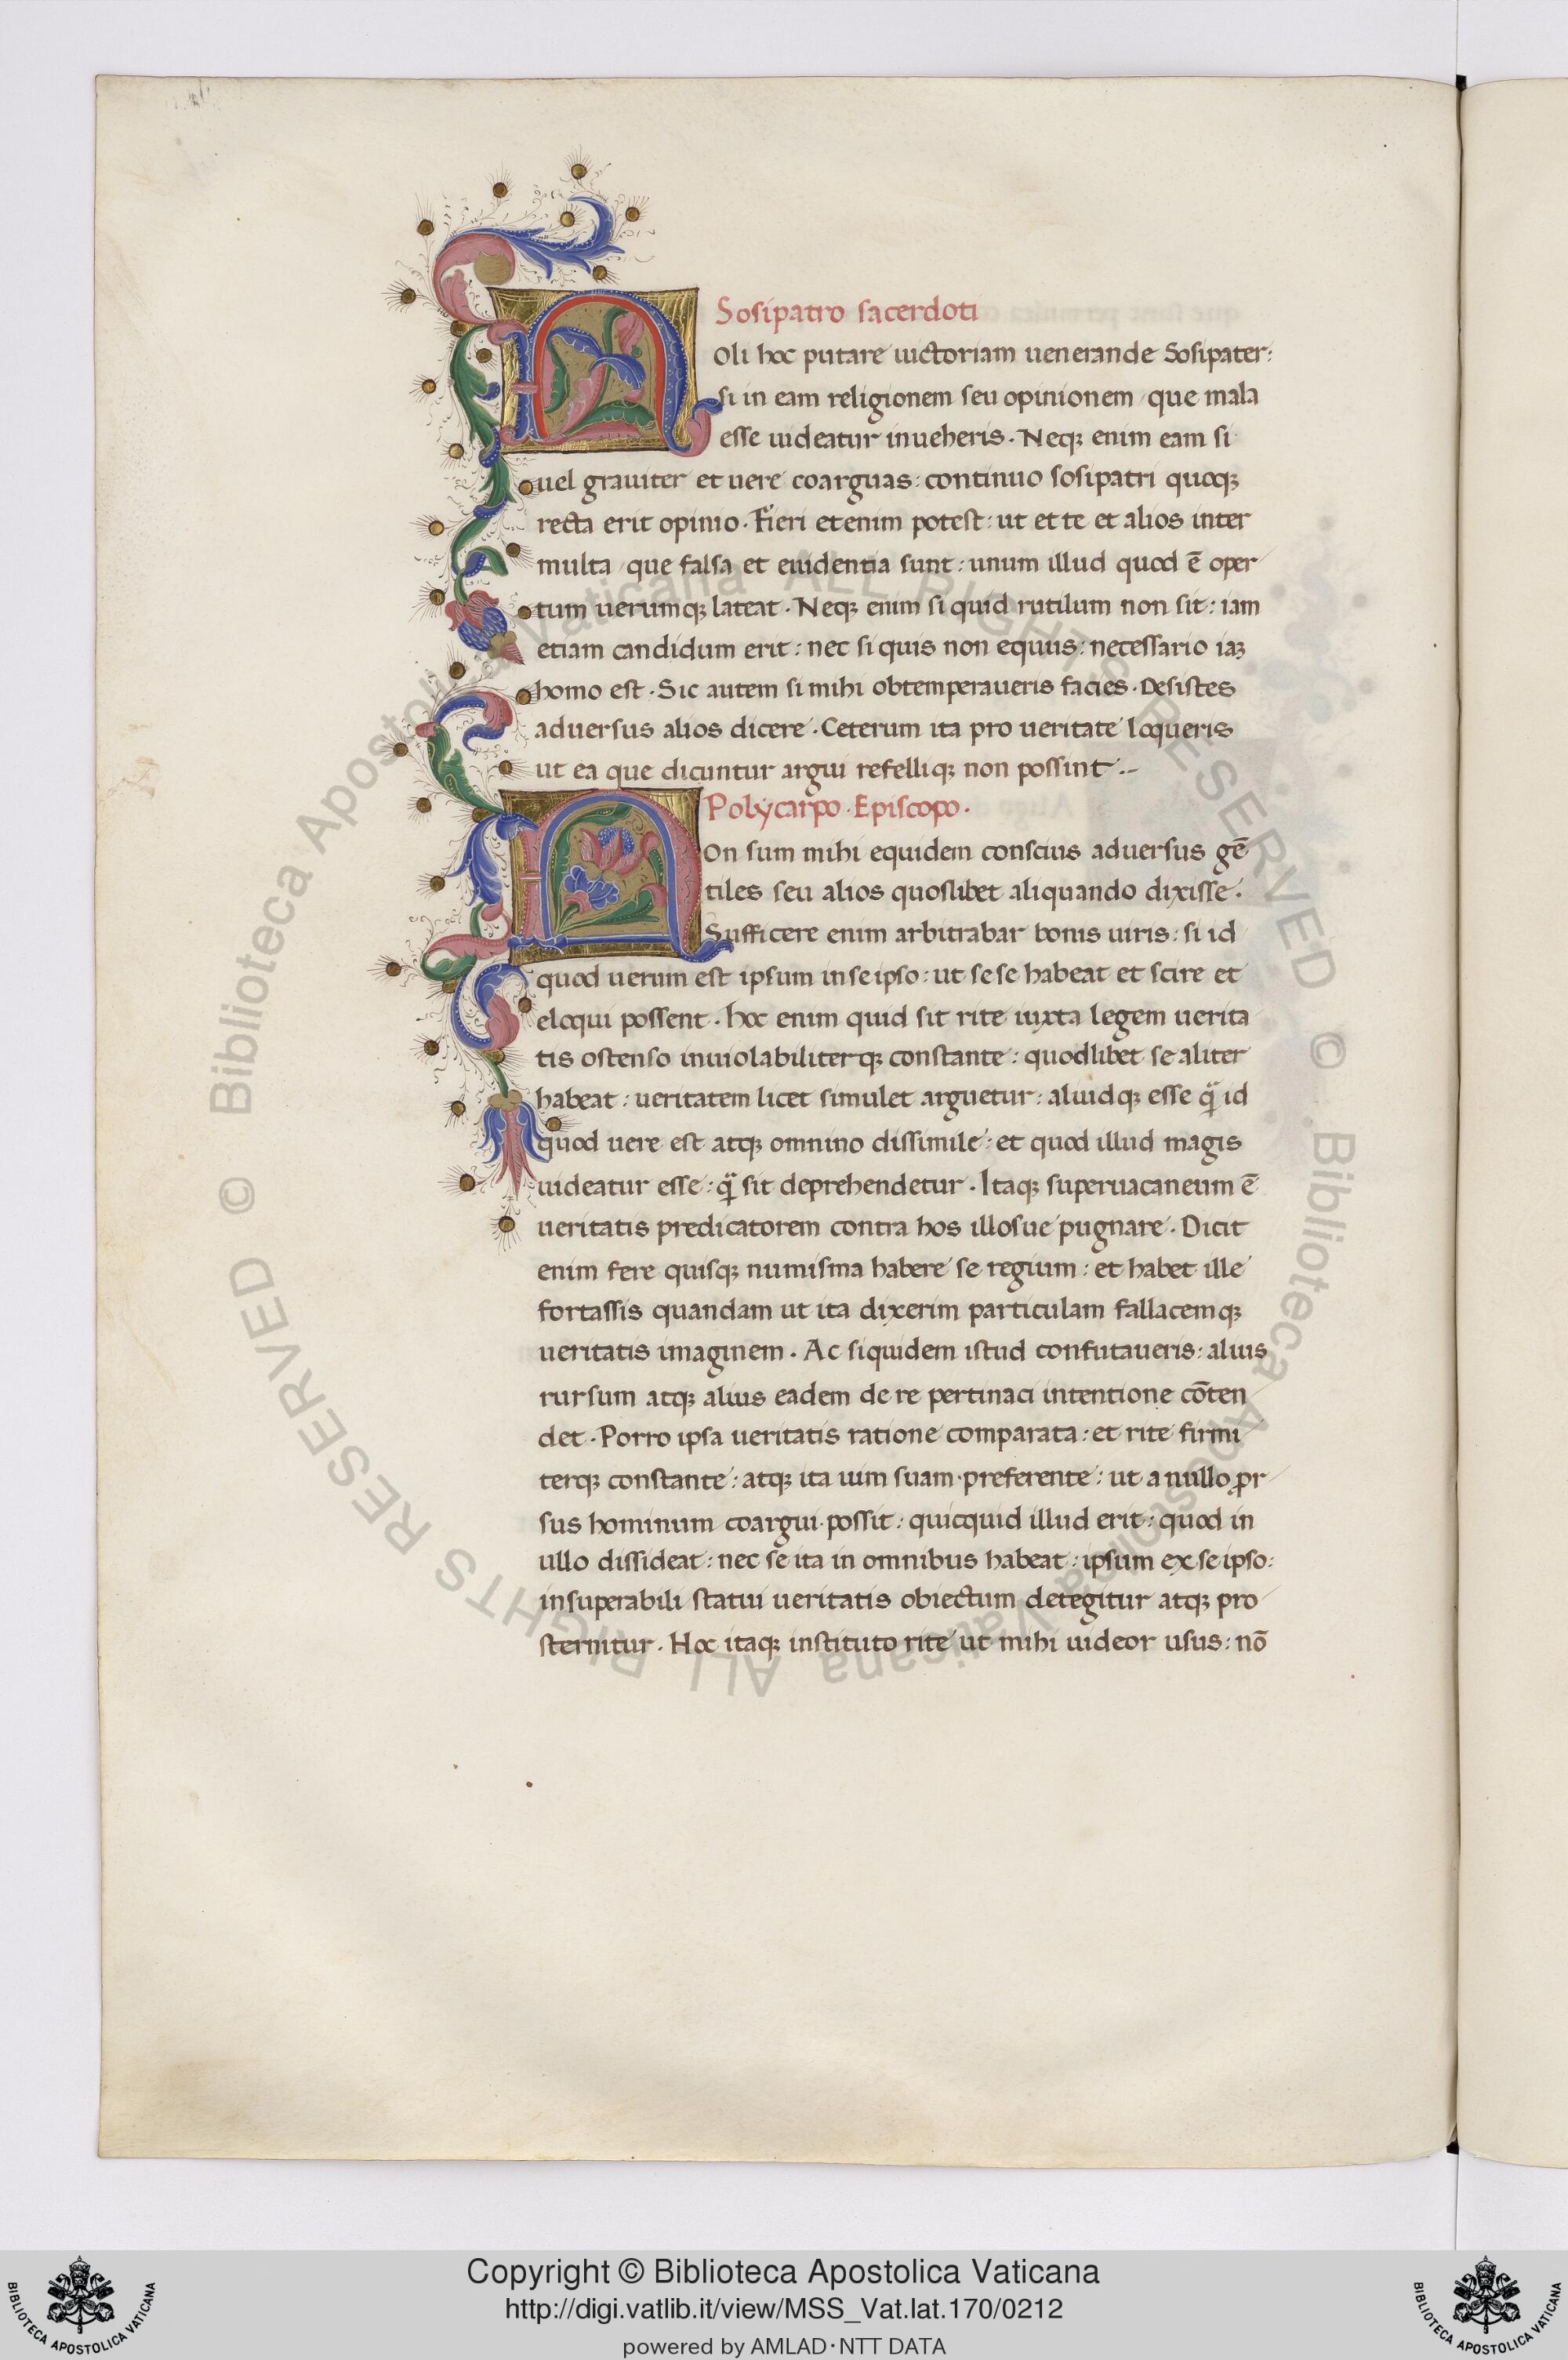 Sosipatro sacerdoti
Noli hoc putare uictoriam uenerande Sosipater:
si in eam religionem seu opinionem / que mala
esse uideatur inueheris. Neqꝫ enim eam si
uel grauiter et uere coarguas: continuo sosipatri quoqꝫ
recta erit opinio. Fieri etenim potest: ut et te et alios inter
multa / que falsa et euidentia sunt: unum illud quod ē oper
tum uerumqꝫ lateat. Neqꝫ enim si quid rutilum non sit: iam
etiam candidum erit: nec si quis non equus: necessario iaꝫ
homo est. Sic autem si mihi obtemperaueris facies. Desistes
aduersus alios dicere. Ceterum ita pro ueritate loqueris
ut ea que dicuntur argui refelliqꝫ non possint.-
Polycarpo. Episcopo.
Non sum mihi equidem conscius aduersus gē
tiles seu alios quoslibet aliquando dixisse.
Sufficere enim arbitrabar bonis uiris: si id
quod uerum est ipsum in se ipso: ut sese habeat et scire et
eloqui possent. hoc enim quid sit rite iuxta legem uerita
tis ostenso inuiolabiliterqꝫ constante: quodlibet se aliter
habeat: ueritatem licet simulet arguetur: aliudqꝫ esse q̈ȝ id
quod uere est atqꝫ omnino dissimile: et quod illud magis
uideatur esse: q̈ȝ sit deprehendetur. Itaqꝫ superuacaneum ē
ueritatis predicatorem contra hos illosue pugnare. Dicit
enim fere quisqꝫ numisma habere se regium: et habet ille
fortassis quandam ut ita dixerim particulam fallacemqꝫ
ueritatis imaginem. Ac siquidem istud confutaueris: alius
rursum atqꝫ alius eadem de re pertinaci intentione cōten
det. Porro ipsa ueritatis ratione comparata: et rite firmi
terqꝫ constante: atqꝫ ita uim suam preferente: ut a nullo ꝓr
sus hominum coargui possit: quicquid illud erit: quod in
ullo dissideat: nec se ita in omnibus habeat: ipsum ex se ipso:
insuperabili statui ueritatis obiectum detegitur atqꝫ pro
sternitur. Hoc itaqꝫ instituto rite ut mihi uideor usus: nō
© Biblioteca Apostolica Vaticana ALL RIGHTS RESERVED © Biblioteca Apostolica Vaticana ALL RIGHTS RESERVED
Copyright © Biblioteca Apostolica Vaticana
http://digi.vatlib.it/view/MSS_Vat.lat.170/0212
powered by AMLAD・NTT DATA
BIBLIOTECA APOSTOLICA VATICANA
BIBLIOTECA APOSTOLICA VATICANA